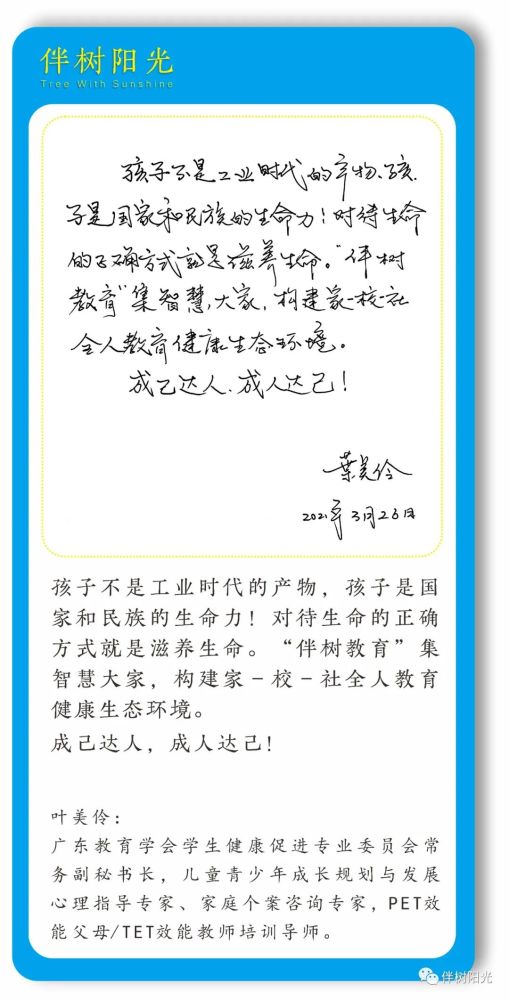 伴树阳光
Tree With Sunshine
孩子不是工业时代的产物、孩
子是国家和民族的生命力！对待生命
的正确方式就是滋养生命。“伴树
教育”集智慧大家，构建家-校-社
全人教育健康生态环境。
成己达人、成人达己！
葉美伶
2021年3月26日
孩子不是工业时代的产物，孩子是国
家和民族的生命力！对待生命的正确
方式就是滋养生命。“伴树教育”集
智慧大家，构建家－校－社全人教育
健康生态环境。
成己达人，成人达己！
叶美伶：
广东教育学会学生健康促进专业委员会常
务副秘书长，儿童青少年成长规划与发展
心理指导专家、家庭个案咨询专家，PET效
能父母/TET效能教师培训导师。
伴树阳光